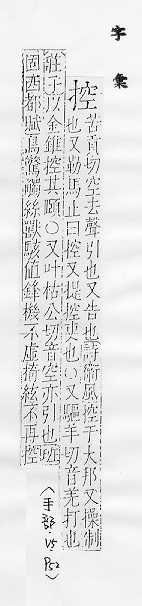 字彙
控
苦貢切空去聲引也又告也詩衞風控于大邦又操制
也又勒馬止曰控又提控吏也○又驅羊切音羌打也
莊子以金錐控其頤○又叶枯公切音空亦引也班
固西都賦鳥驚觸絲獸駭值鋒機不虛掎絃不再控
(手部 VS P52)